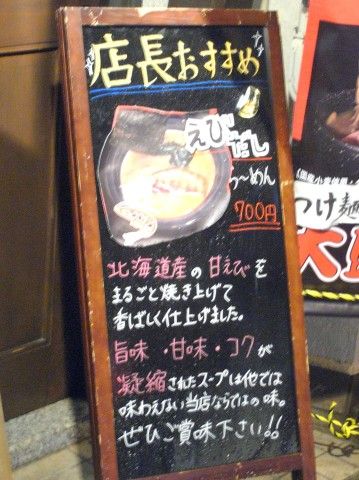 店長おすすめ
えび
だし
らーめん
700円
北海道産の甘えびを
まるごと焼き上げて
香ばしく仕上げました。
旨味・甘味・コクが
凝縮されたスープは他では
味わえない当店ならではの味。
ぜひご賞味下さい!!
つけ麺